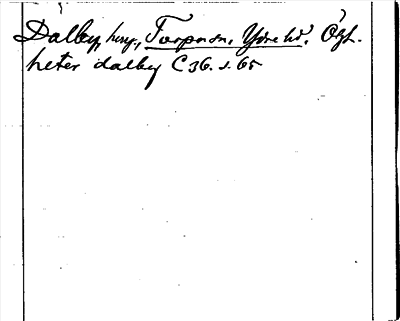 Dalby, herrg., Torpa sn, Ydre hd, Ögl.
heter dalby C 36. s. 65